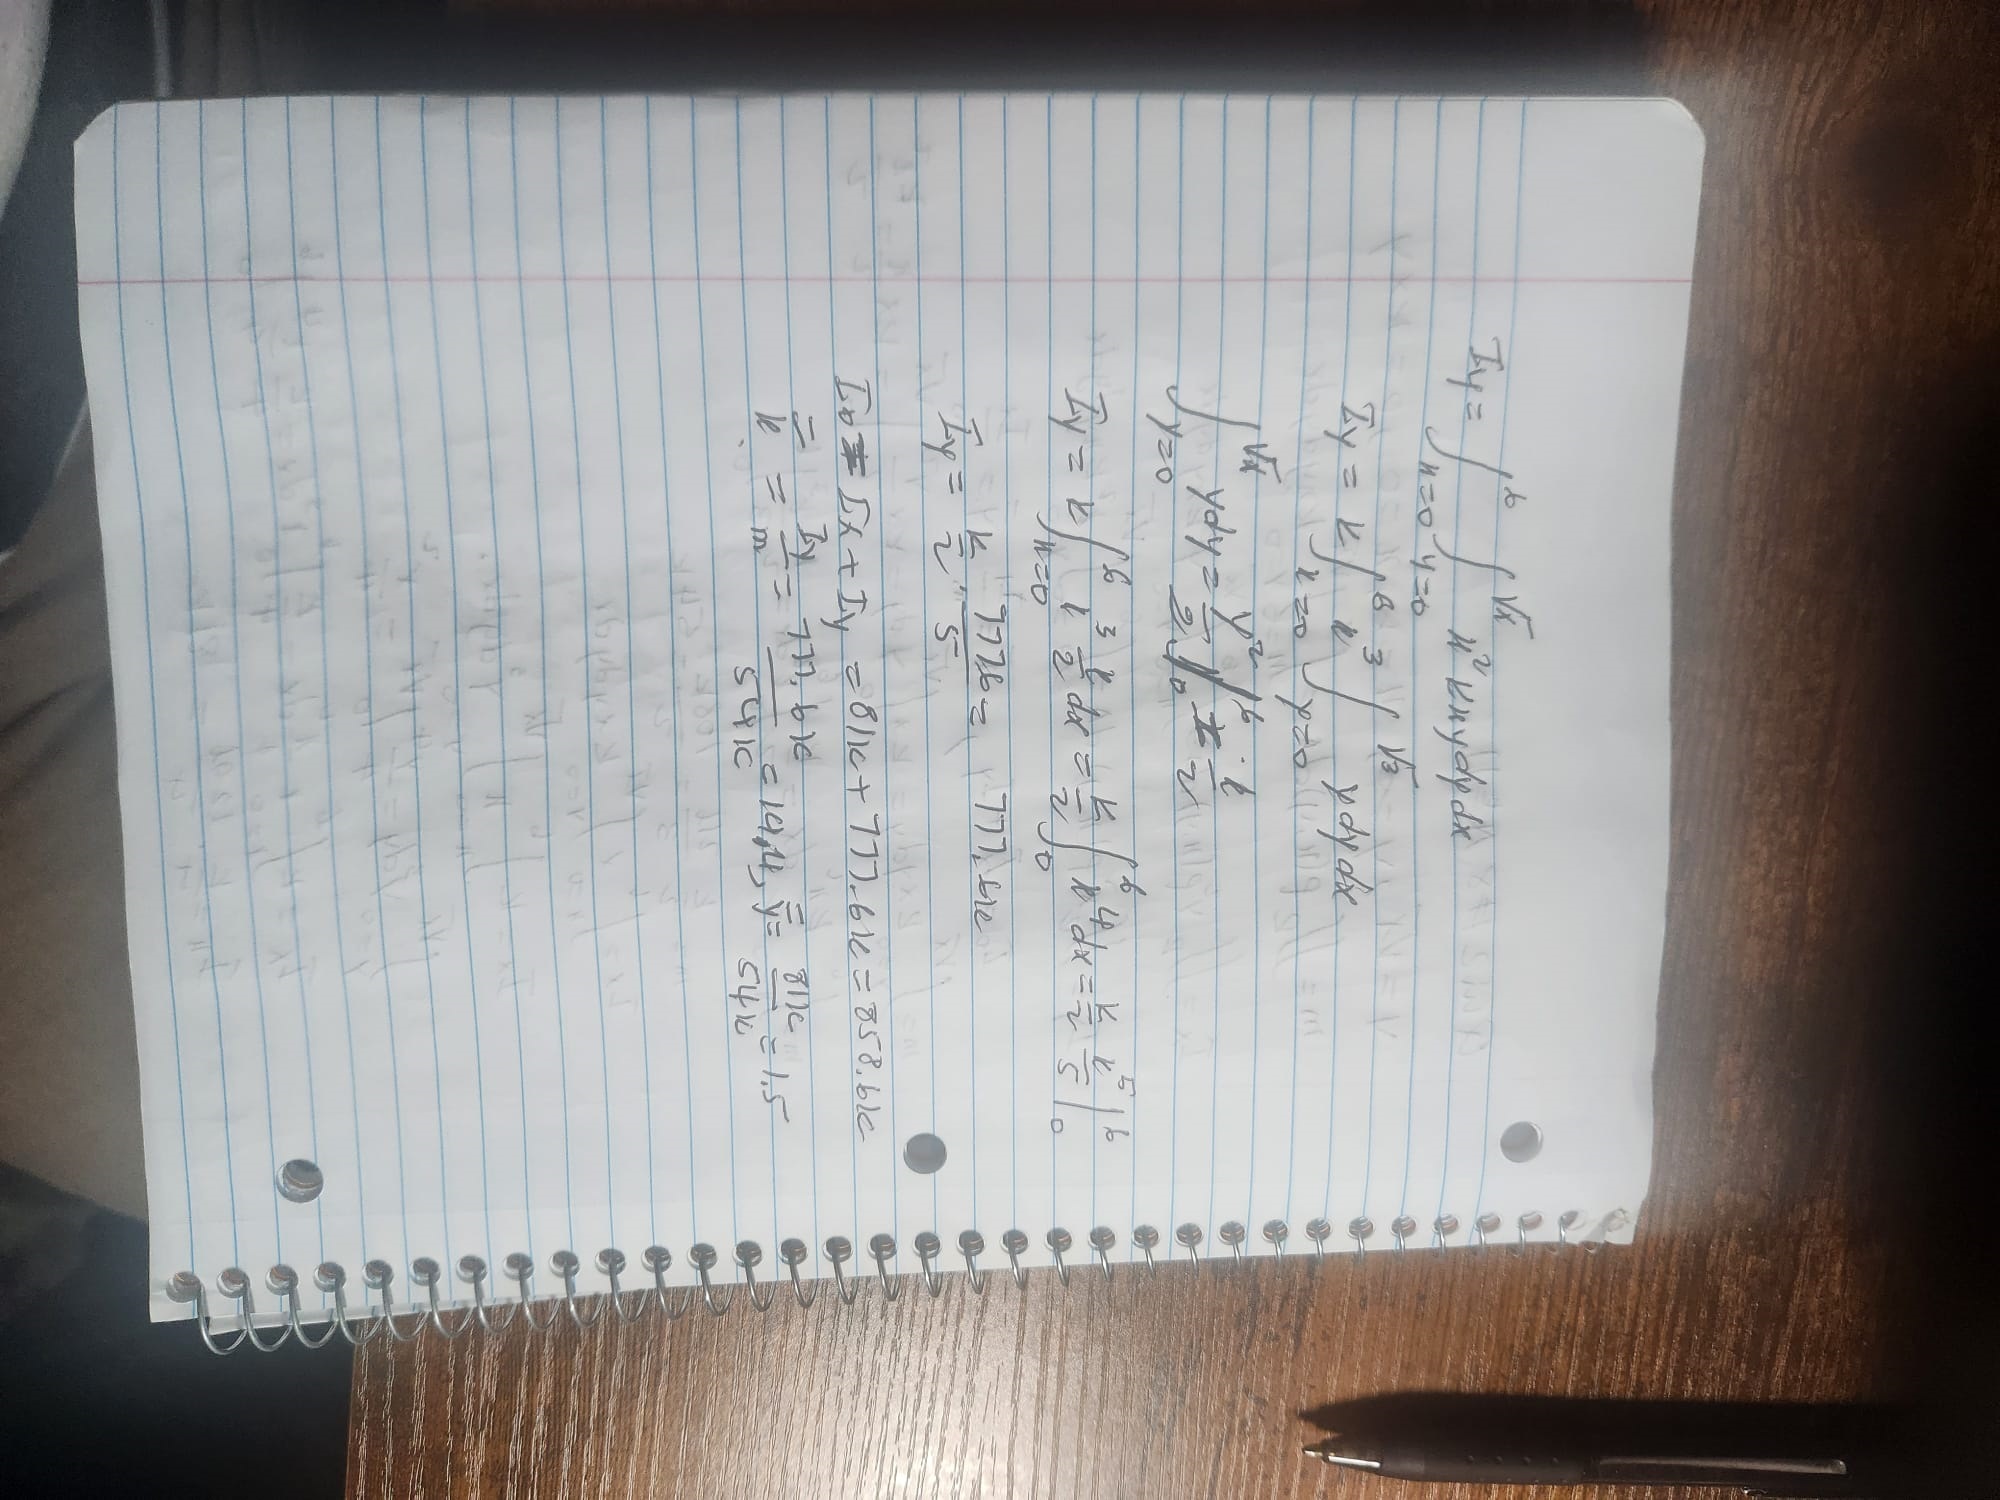 Iy = ∫_{x=0}^{6} ∫_{y=0}^{√x} x² kxy dy dx
Iy = k ∫_{x=0}^{6} x³ ∫_{y=0}^{√x} y dy dx
∫_{y=0}^{√x} y dy = y²/2 |_0^6 = x/2
Iy = k ∫_{x=0}^{6} x³ x/2 dx = k/2 ∫_0^6 x⁴ dx = k/2 x⁵/5 |_0^6
Iy = k/2 · 7776/5 = 777.6k
Io = Ix + Iy = 81k + 777.6k = 858.6k
x̿ = Iy/m = 777.6k/54k = 14.4, y̿ = 81k/54k = 1.5